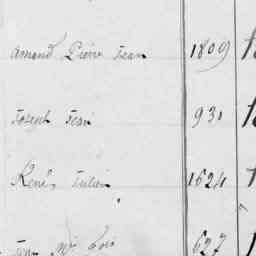 Amand Pierre Jean 1809
Joseph Jean 931
René Julien 1524
Jean Mie Fois 627